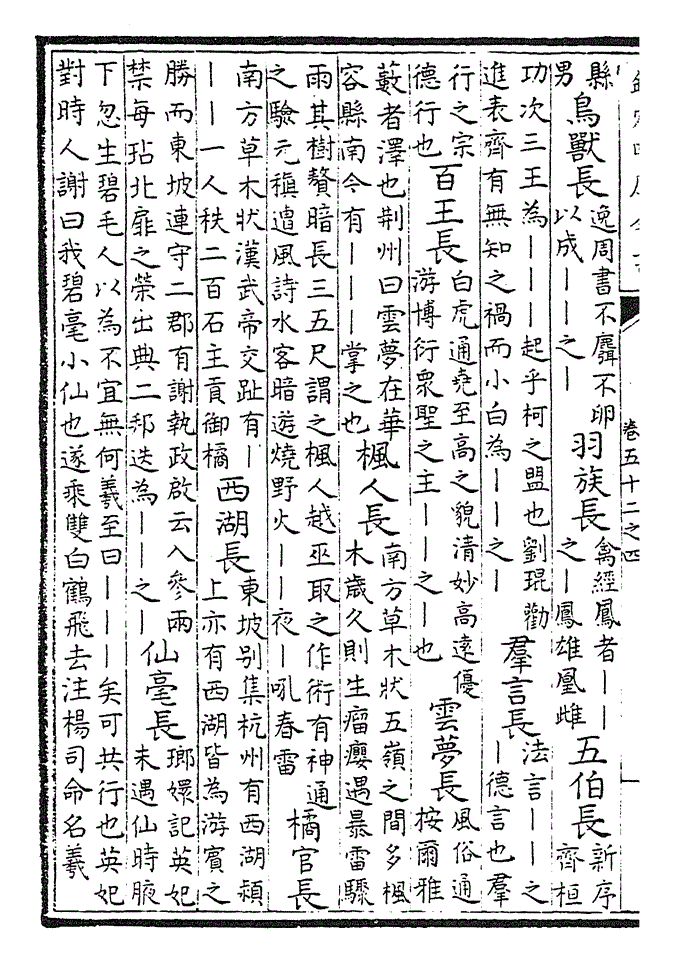 卷五十二之四
縣
男
鳥獸長
逸周書不麛不卵
以成——之—
羽族長
禽經鳳者——
之—鳳雄凰雌
五伯長
新序
齊桓
功次三王為———起乎柯之盟也劉琨勸
進表齊有無知之禍而小白為——之—
羣言長
法言——之
—德言也羣
行之宗
德行也
百王長
白虎通堯至高之貌清妙高遠優
游博衍衆聖之主——之—也
雲夢長
風俗通
按爾雅
藪者澤也荆州曰雲夢在華
容縣南今有———掌之也
楓人長
南方草木狀五嶺之間多楓
木歲久則生瘤癭遇暴雷驟
雨其樹贅暗長三五尺謂之楓人越巫取之作術有神通
之驗元稹遣風詩水客暗遊燒野火——夜—吼春雷
橘官長
南方草木狀漢武帝交趾有—
——一人秩二百石主貢御橘
西湖長
東坡别集杭州有西湖潁
上亦有西湖皆為游賓之
勝而東坡連守二郡有謝執政啟云入參兩
禁每玷北扉之榮出典二邦迭為——之—
仙毫長
瑯嬛記英妃
未遇仙時腋
下忽生碧毛人以為不宜無何羲至曰———矣可共行也英妃
對時人謝曰我碧毫小仙也遂乘雙白鶴飛去注楊司命名羲